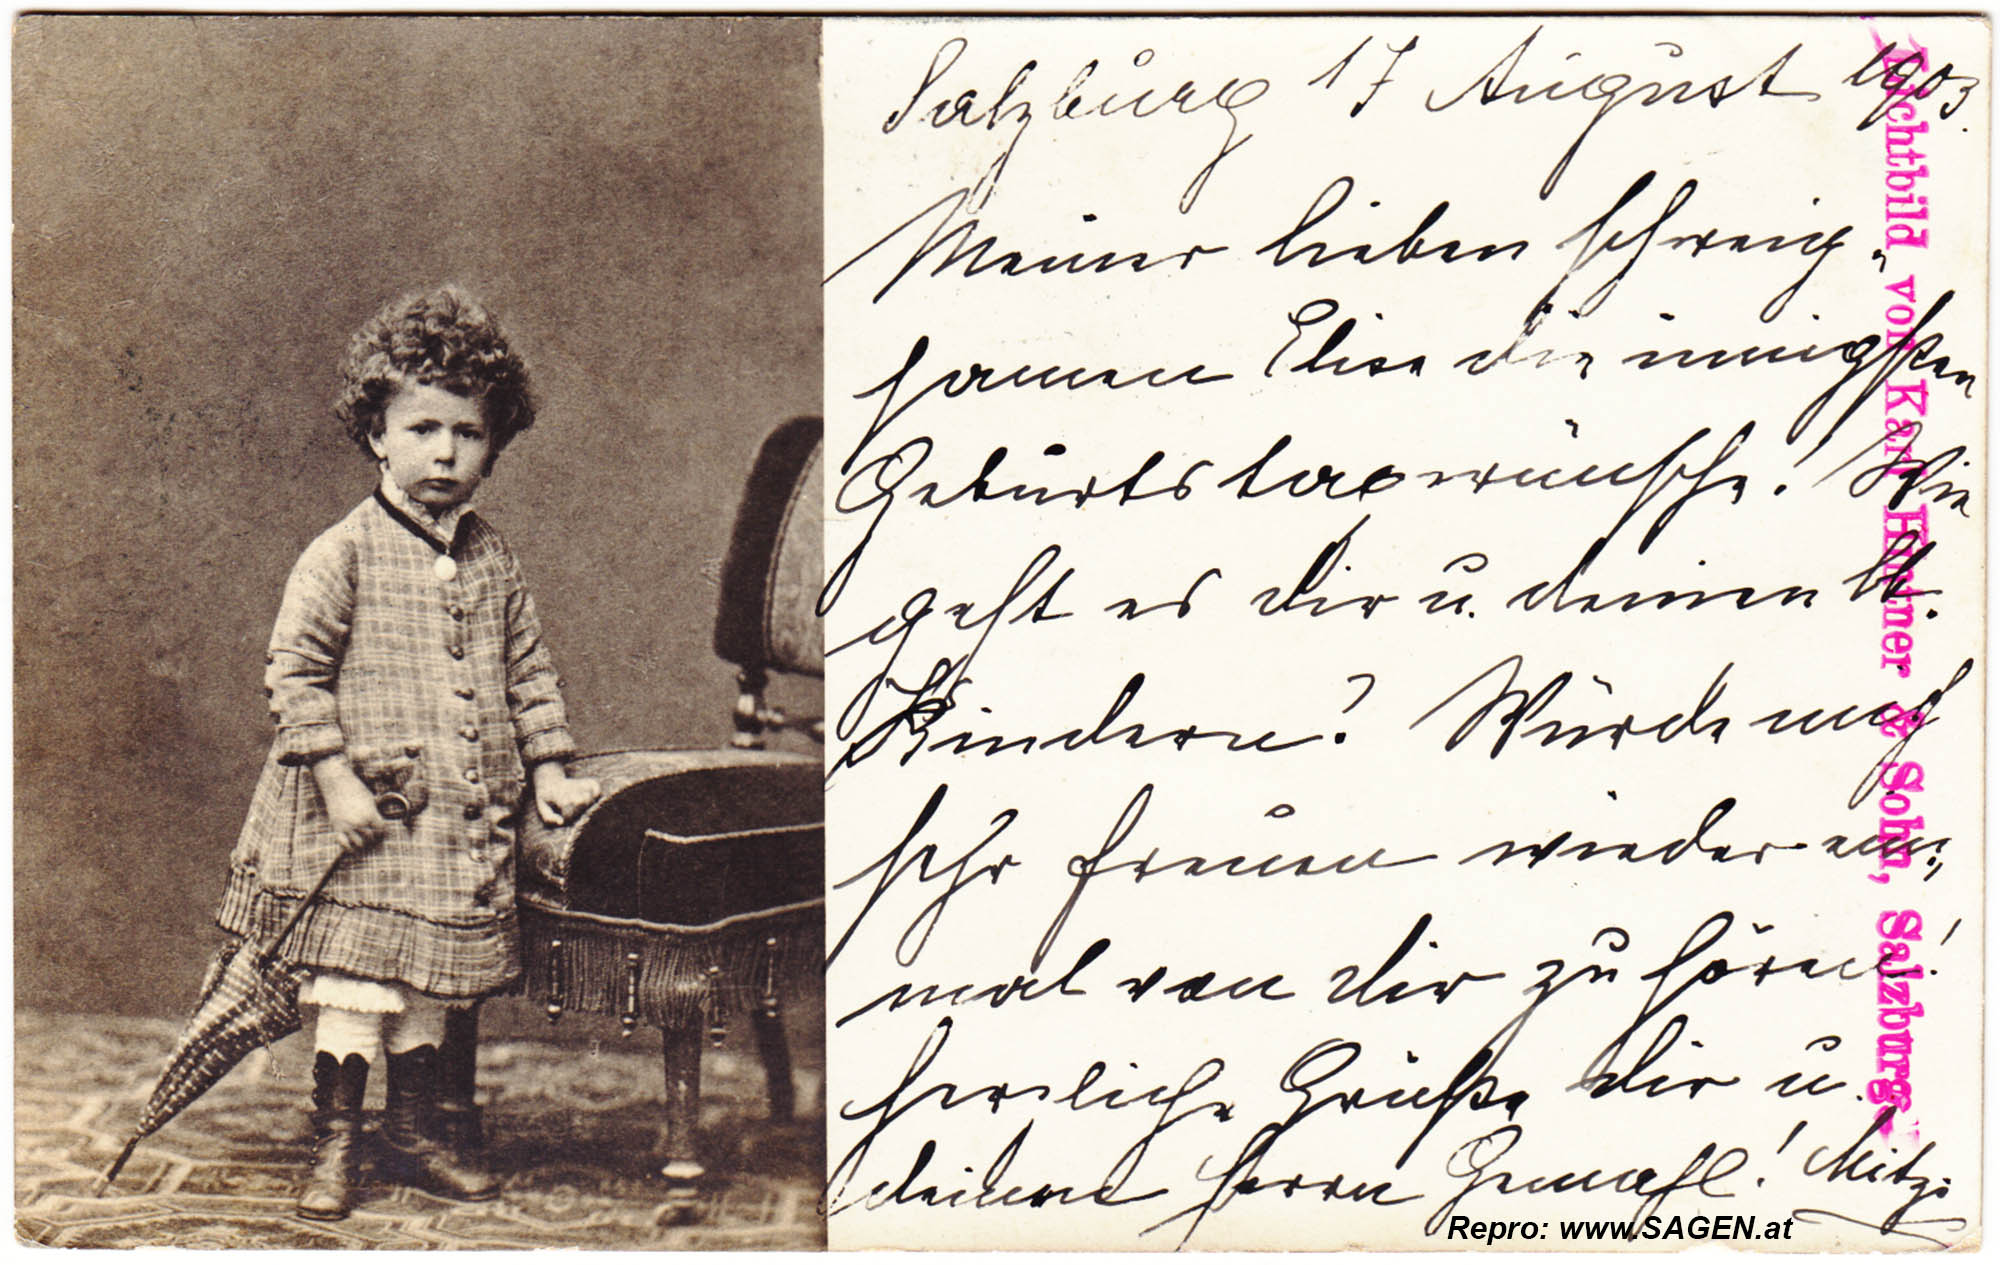 Salzburg 17 August 1903.
Meiner lieben schweig„
samen Elise die innigsten
Geburtstagswünsche! Wie
geht es dir u. deinen kl.
Kindern? Würde mich
sehr freuen wieder ein„
mal von dir zu hören!
herzliche Grüße dir u.
deinem Herrn Gemahl! Mitzi
Lichtbild von Karl Hintner & Sohn, Salzburg.
Repro: www.SAGEN.at